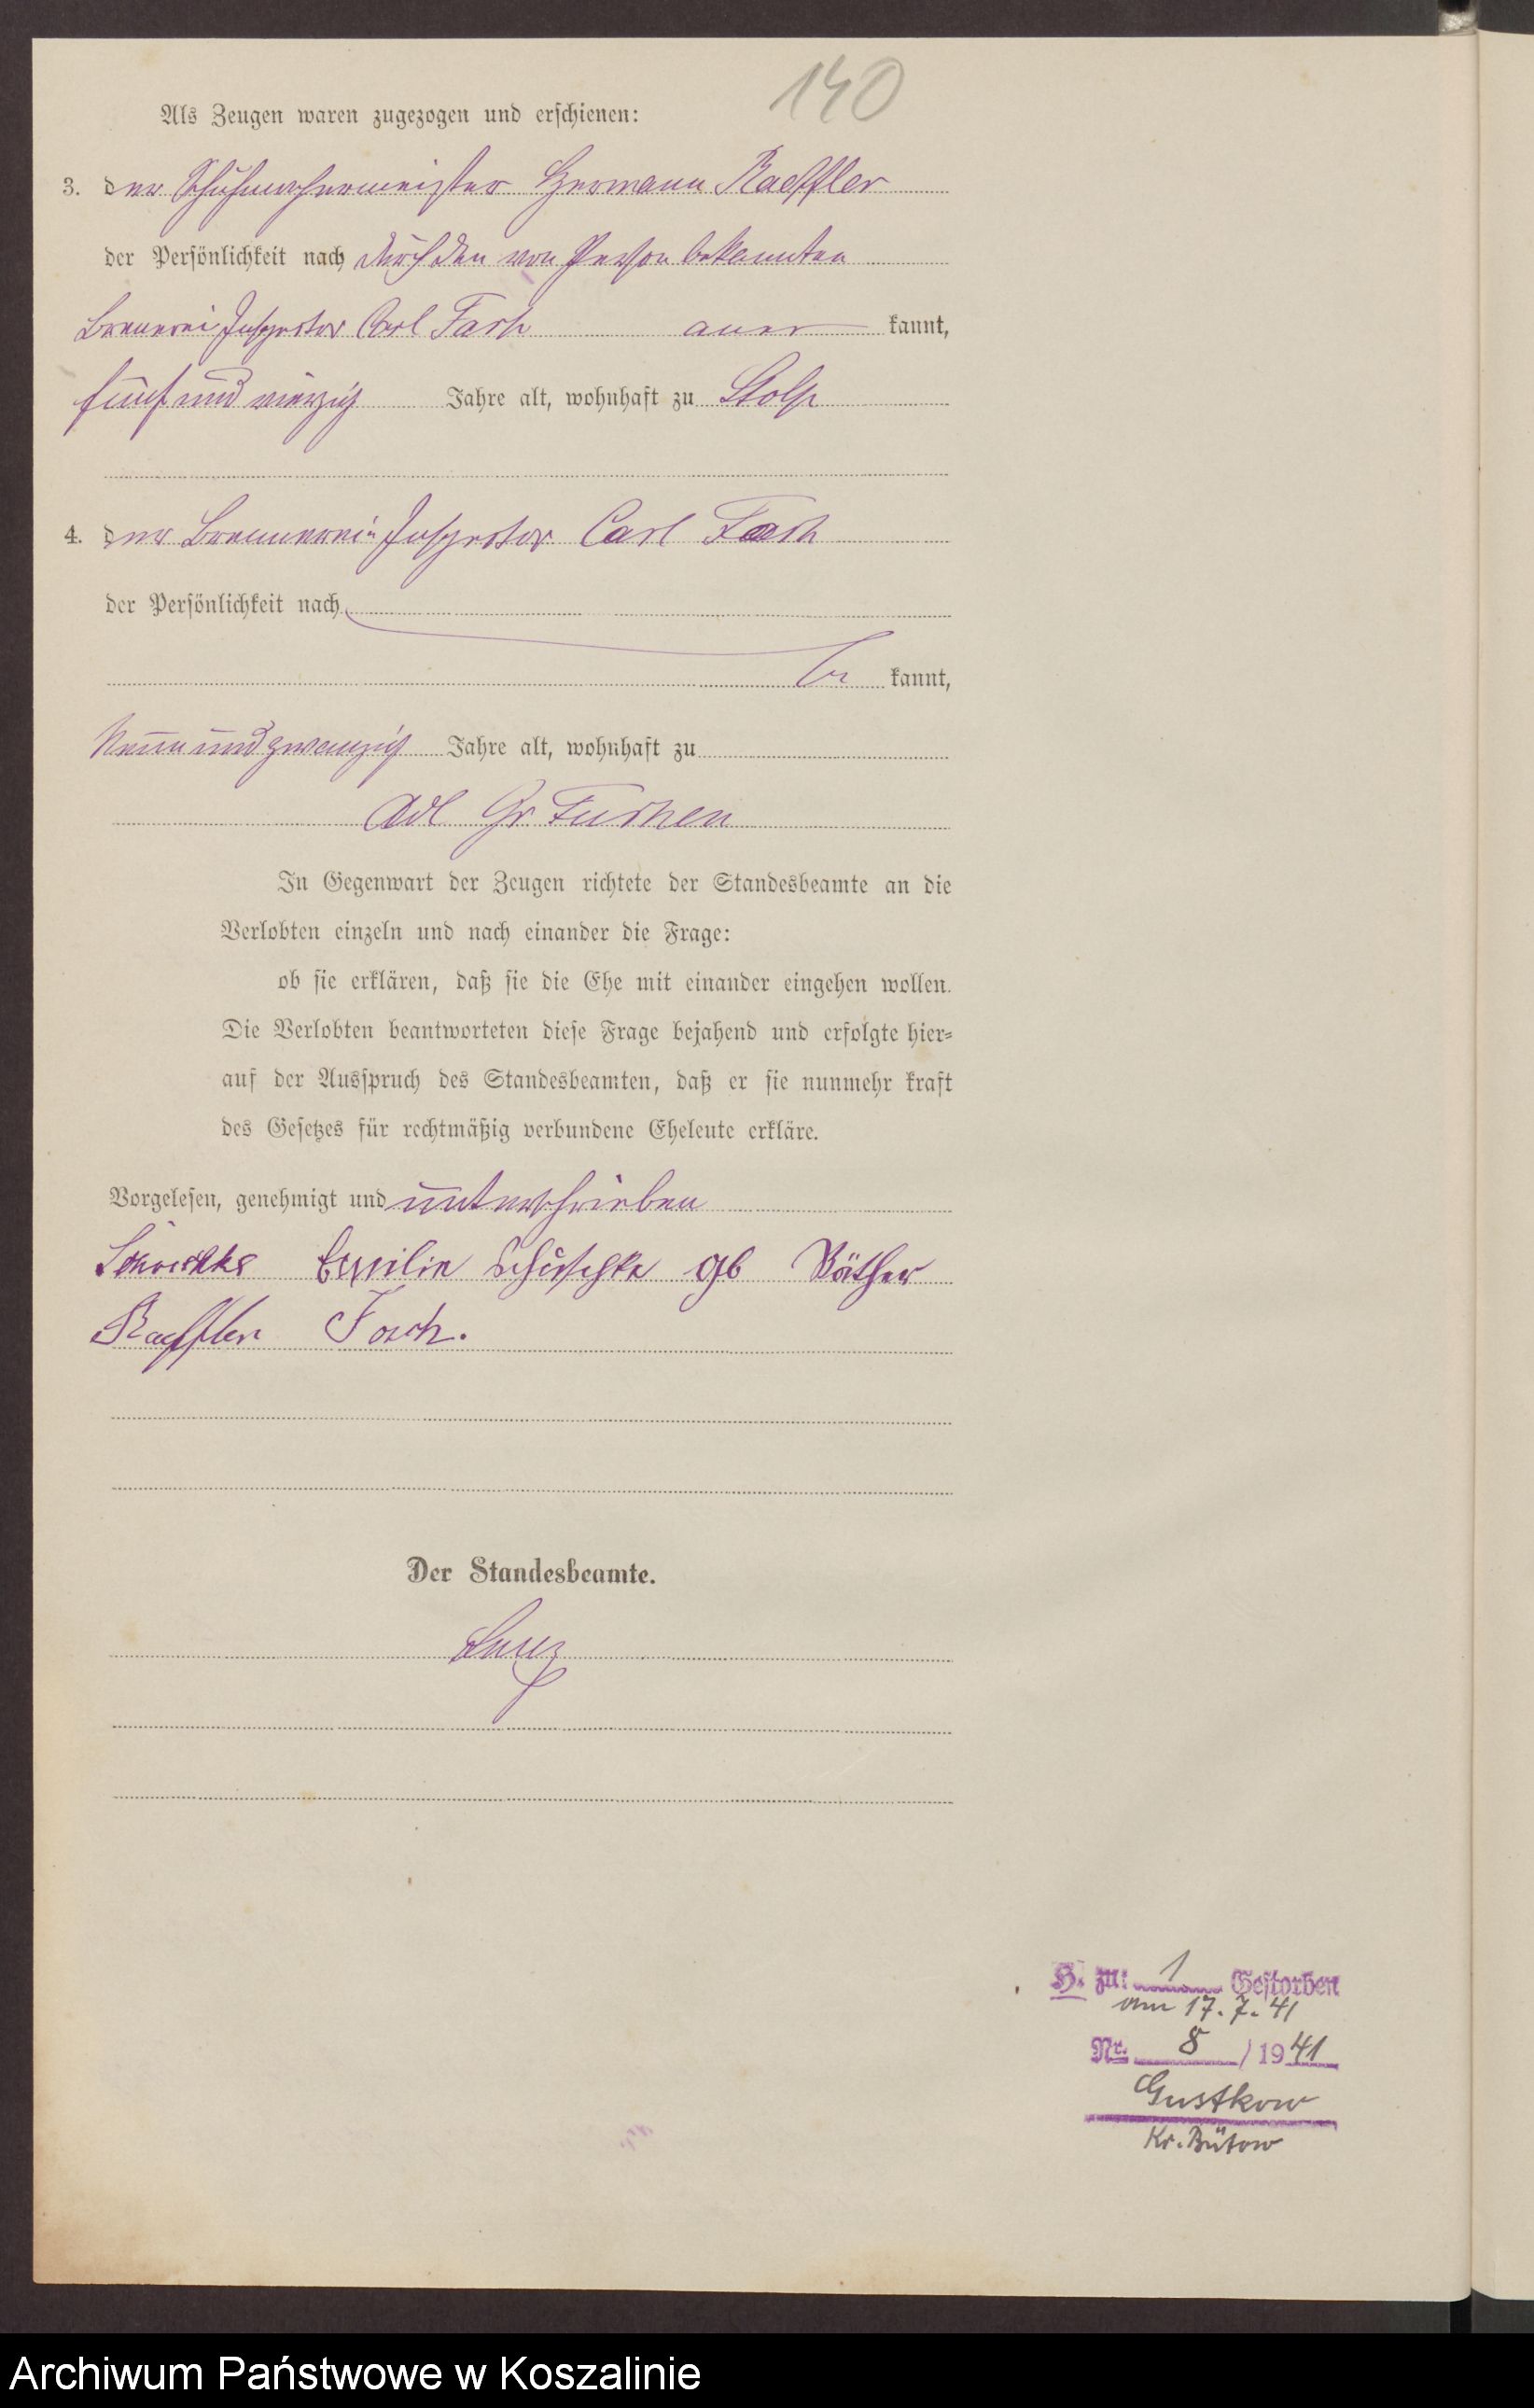 140
Als Zeugen waren zugezogen und erschienen:
3. der Schuhmachermeister Hermann Raeffler
der Persönlichkeit nach durch den von Person bekannten
Brennerei Inspector Carl Fach aner kannt,
fünf und vierzig Jahre alt, wohnhaft zu Stolp
4. der Brennerei-Inspector Carl
der Persönlichkeit nach
be kannt,
neun und zwanzig Jahre alt, wohnhaft zu
Adl Gr
In Gegenwart der Zeugen richtete der Standesbeamte an die
Verlobten einzeln und nach einander die Frage:
ob sie erklären, daß sie die Ehe mit einander eingehen wollen.
Die Verlobten beantworteten diese Frage bejahend und erfolgte hier-
auf der Ausspruch des Standesbeamten, daß er sie nunmehr kraft
des Gesetzes für rechtmäßig verbundene Eheleute erkläre.
Vorgelesen, genehmigt und unterschrieben
Emilie gb Räther
Raeffler
Der Standesbeamte.
H. zu: 1 Gestorben
am 17. 7. 41
Nr. 8 / 1941
Gustkow
Kr. Bütow
Archiwum Państwowe w Koszalinie